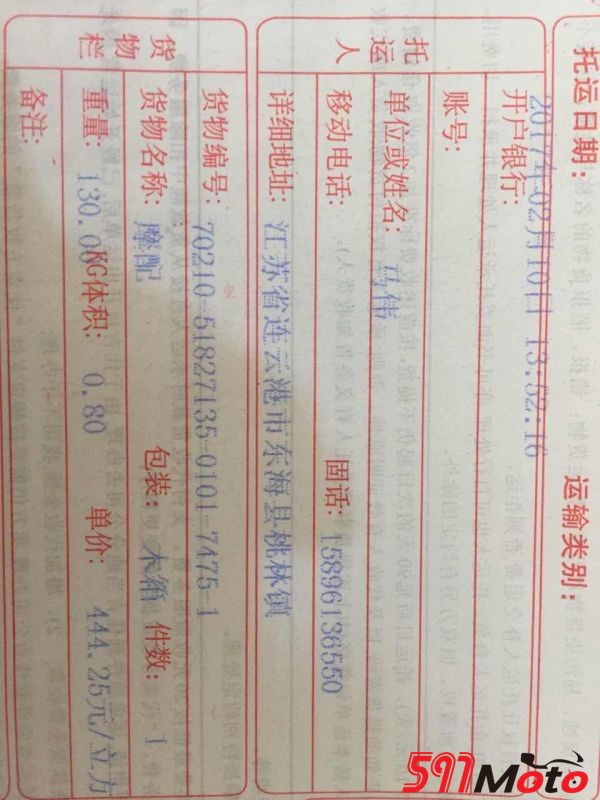 托运日期: 2017年02月10日 13:52:16 运输类别:
开户银行:
账号:
托运人
单位或姓名: 马伟
移动电话: 固话: 15896136550
详细地址: 江苏省连云港市东海县桃林镇
货物栏
货物编号: 70210-51827135-0101-7475-1
货物名称: 摩配 包装: 木箱 件数: 1
重量: 130.00KG体积: 0.80 单价: 444.25元/立方
备注:
591Moto